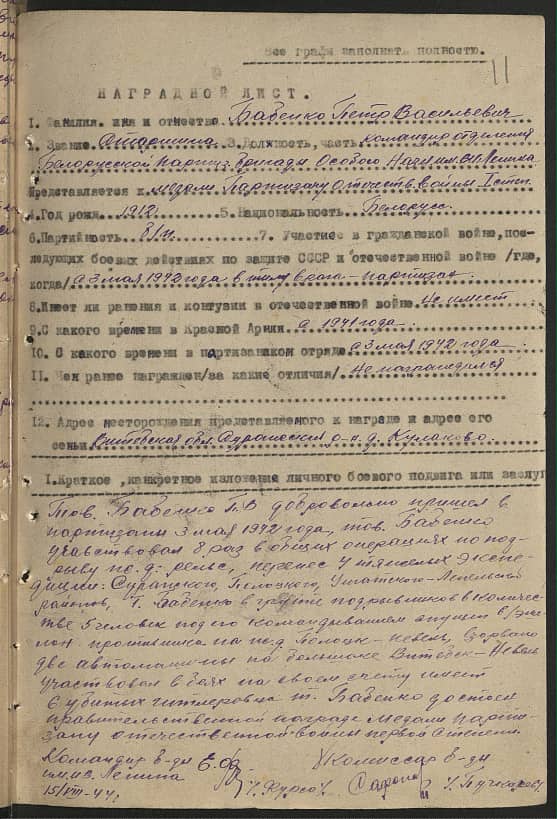 Все графы заполнять полностью.
11
НАГРАДНОЙ ЛИСТ.
1. Фамилия. имя и отчество Бабенко Петр Васильевич
2. Звание Старшина 3. Должность, часть командир отделения
Белорусской партиз. бригады Особого Назн им. В.И. Ленина
Представляется к медали Партизану отечеств войны I степ.
4. Год рожд. 1912 5. Национальность Белорус.
6. Партийность б/п. 7. Участие в гражданской войне, пос-
ледующих боевых действиях по защите СССР и отечественной войне /где,
когда/ с 3 мая 1942 года в тылу врага - партизан.
8. Имеет ли ранения и контузии в отечественной войне. Не имеет
9. С какого времени в Красной Армии. с 1941 года.
10. С какого времени в партизанском отряде с 3 мая 1942 года.
11. Чем ранее награжден/за какие отличия/. Не награждался
12. Адрес месторождения представляемого к награде и адрес его
семьи. Витебская обл. Суражский р-н. д. Кулаково.
I. Краткое, конкретное изложение личного боевого подвига или заслуг
Тов. Бабенко П.В добровольно пришел в
партизаны 3 мая 1942 года, тов. Бабенко
участвовал 8 раз в общих операциях по под-
рыву ж.д. рельс, перенес 4 тяжелых экспе-
диции: Суражского, Полоцкого, Ушачского-Лепельского
районов, Т. Бабенко в группе подрывников в количес-
тве 5 человек под его командыванием спущен 1/эше-
лон противника на ж.д Полоцк-Невель, взорвано
две автомашины на большаке Витебск-Невель
участвовал в боях на своем счету имеет
6 убитых гитлеровца т. Бабенко достоен
правительственной награде Медали парти-
зану отечественной войны первой степени.
Командир б-ды Комиссар б-ды
им. Ленина
15/VIII-44г.